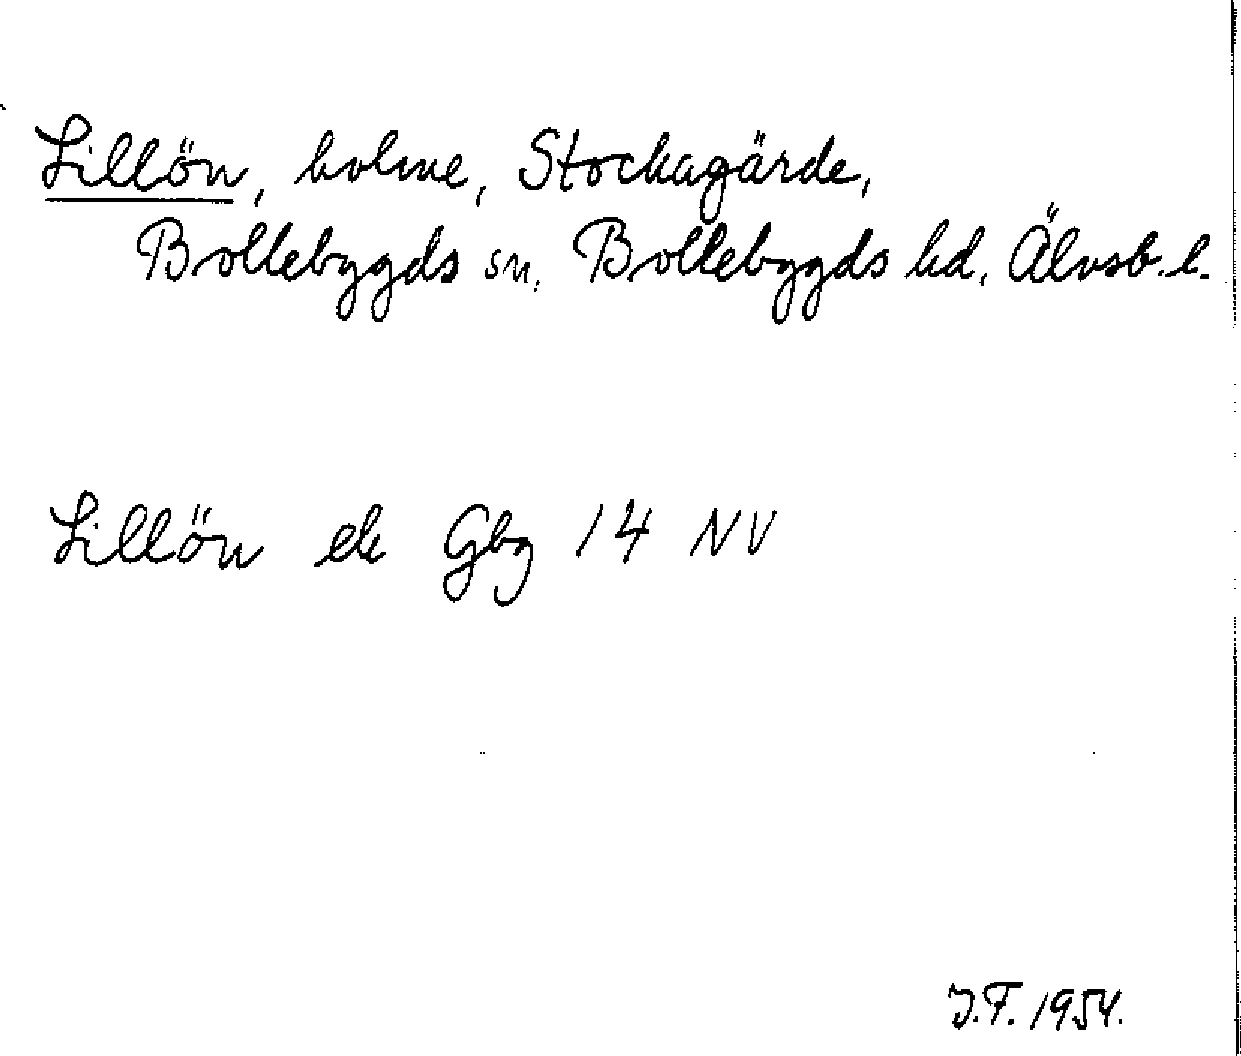 Lillön, holme, Stockagärde,
Bollebygds sn, Bollebygds hd, Älvsb. l.
Lillön ek Gbg 14 NV
J.F. 1954.